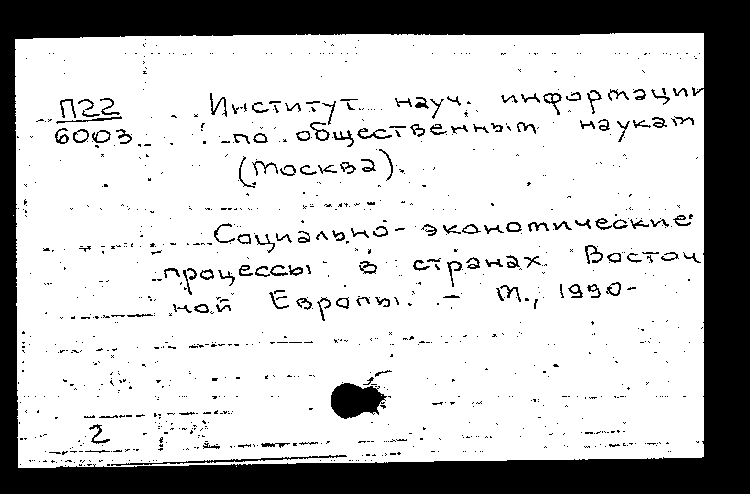 П22
6003
Институт науч. информации
по общественным наукам
(Москва).
Социально-экономические
процессы в странах Восточ
ной Европы. – М., 1990-
2